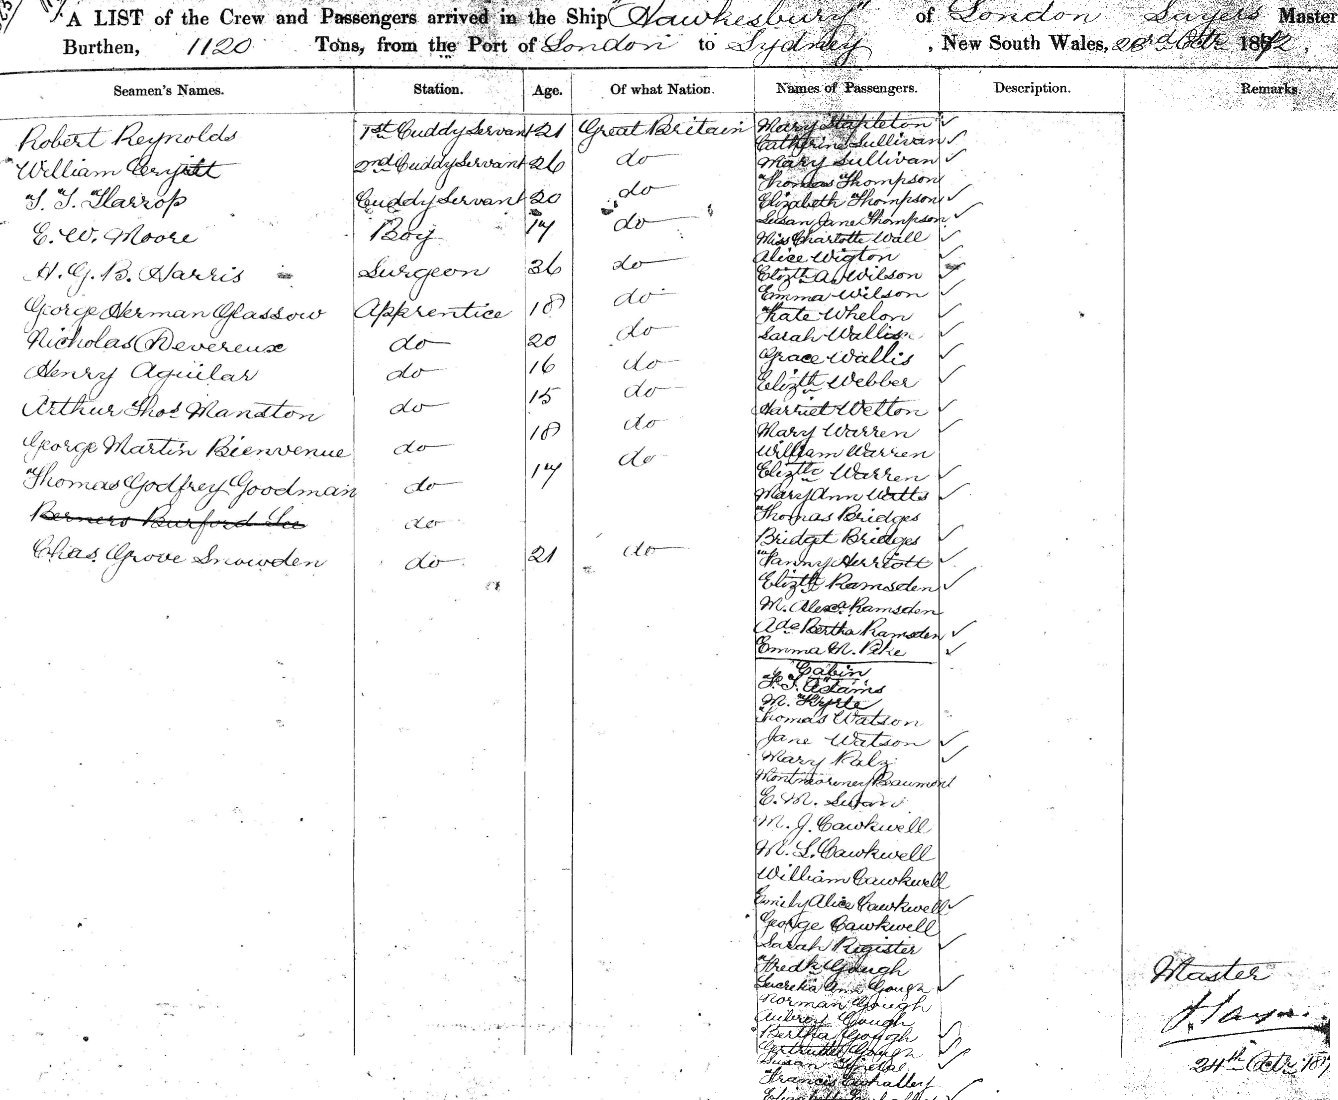 A LIST of the Crew and Passengers arrived in the Ship "Hawkesbury" of London Sayers Master
Burthen, 1120 Tons, from the Port of London to Sydney, New South Wales, 23rd Octr 1872.
Seamen's Names. Station. Age. Of what Nation. Names of Passengers. Description. Remarks.
Robert Reynolds 1st Cuddy Servant 21 Great Britain
William 2nd Cuddy Servant 26 do
Harrop Cuddy Servant 20 do
E. W. Moore Boy 17 do
H. G. B. Harris Surgeon 36 do
George Herman Glassow Apprentice 18 do
Nicholas Devereux do 20 do
Henry Aguilar do 16 do
Arthur Thos Manston do 15 do
George Martin Bienvenue do 18 do
Thomas Godfrey Goodman do 17 do
Berners Burford do
Chas. Grove Snowden do 21 do
Mary Stapleton
Catherine Sullivan
Mary Sullivan
Thomas Thompson
Elizabeth Thompson
Susan Jane Thompson
Miss Charlotte Wall
Alice Wigton
Elizth A. Wilson
Emma Wilson
Kate Whelon
Sarah Wallis
Grace Wallis
Elizth Webber
Harriet Welton
Mary Warren
William Warren
Elizth Warren
Mary Ann Watts
Thomas Bridges
Bridget Bridges
Fanny Herriott
Elizth Ramsden
M. Alexr Ramsden
Ada Bertha Ramsden
Emma M. Pike
Cabin
Adams
M. Kyrle
Thomas Watson
Jane Watson
Mary
Beaumont
E. M. Swan
M. J. Cawkwell
M. L. Cawkwell
William Cawkwell
Emily Alice Cawkwell
George Cawkwell
Sarah Register
Fredk Gough
Lucretia Ann Gough
Norman Gough
Aubrey Gough
Bertha Gough
Gertrude Gough
Susan
Francis
Elizabeth
Master
24th Octr